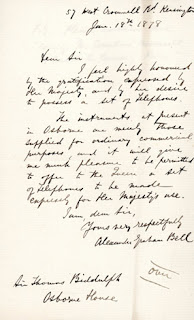 57 West Cromwell Rd. Kensington
Jan. 18th 1878
Dear Sir
I feel highly honoured
by the gratification expressed by
Her Majesty, and by her desire
to possess a set of Telephones.
The instruments at present
in Osborne are merely those
supplied for ordinary commercial
purposes and it will give
me much pleasure to be permitted
to offer to the Queen a set
of Telephones to be made
expressly for Her Majesty's use.
I am dear Sir,
Yours very respectfully
Alexander Graham Bell
over
Sir Thomas Biddulph
Osborne House